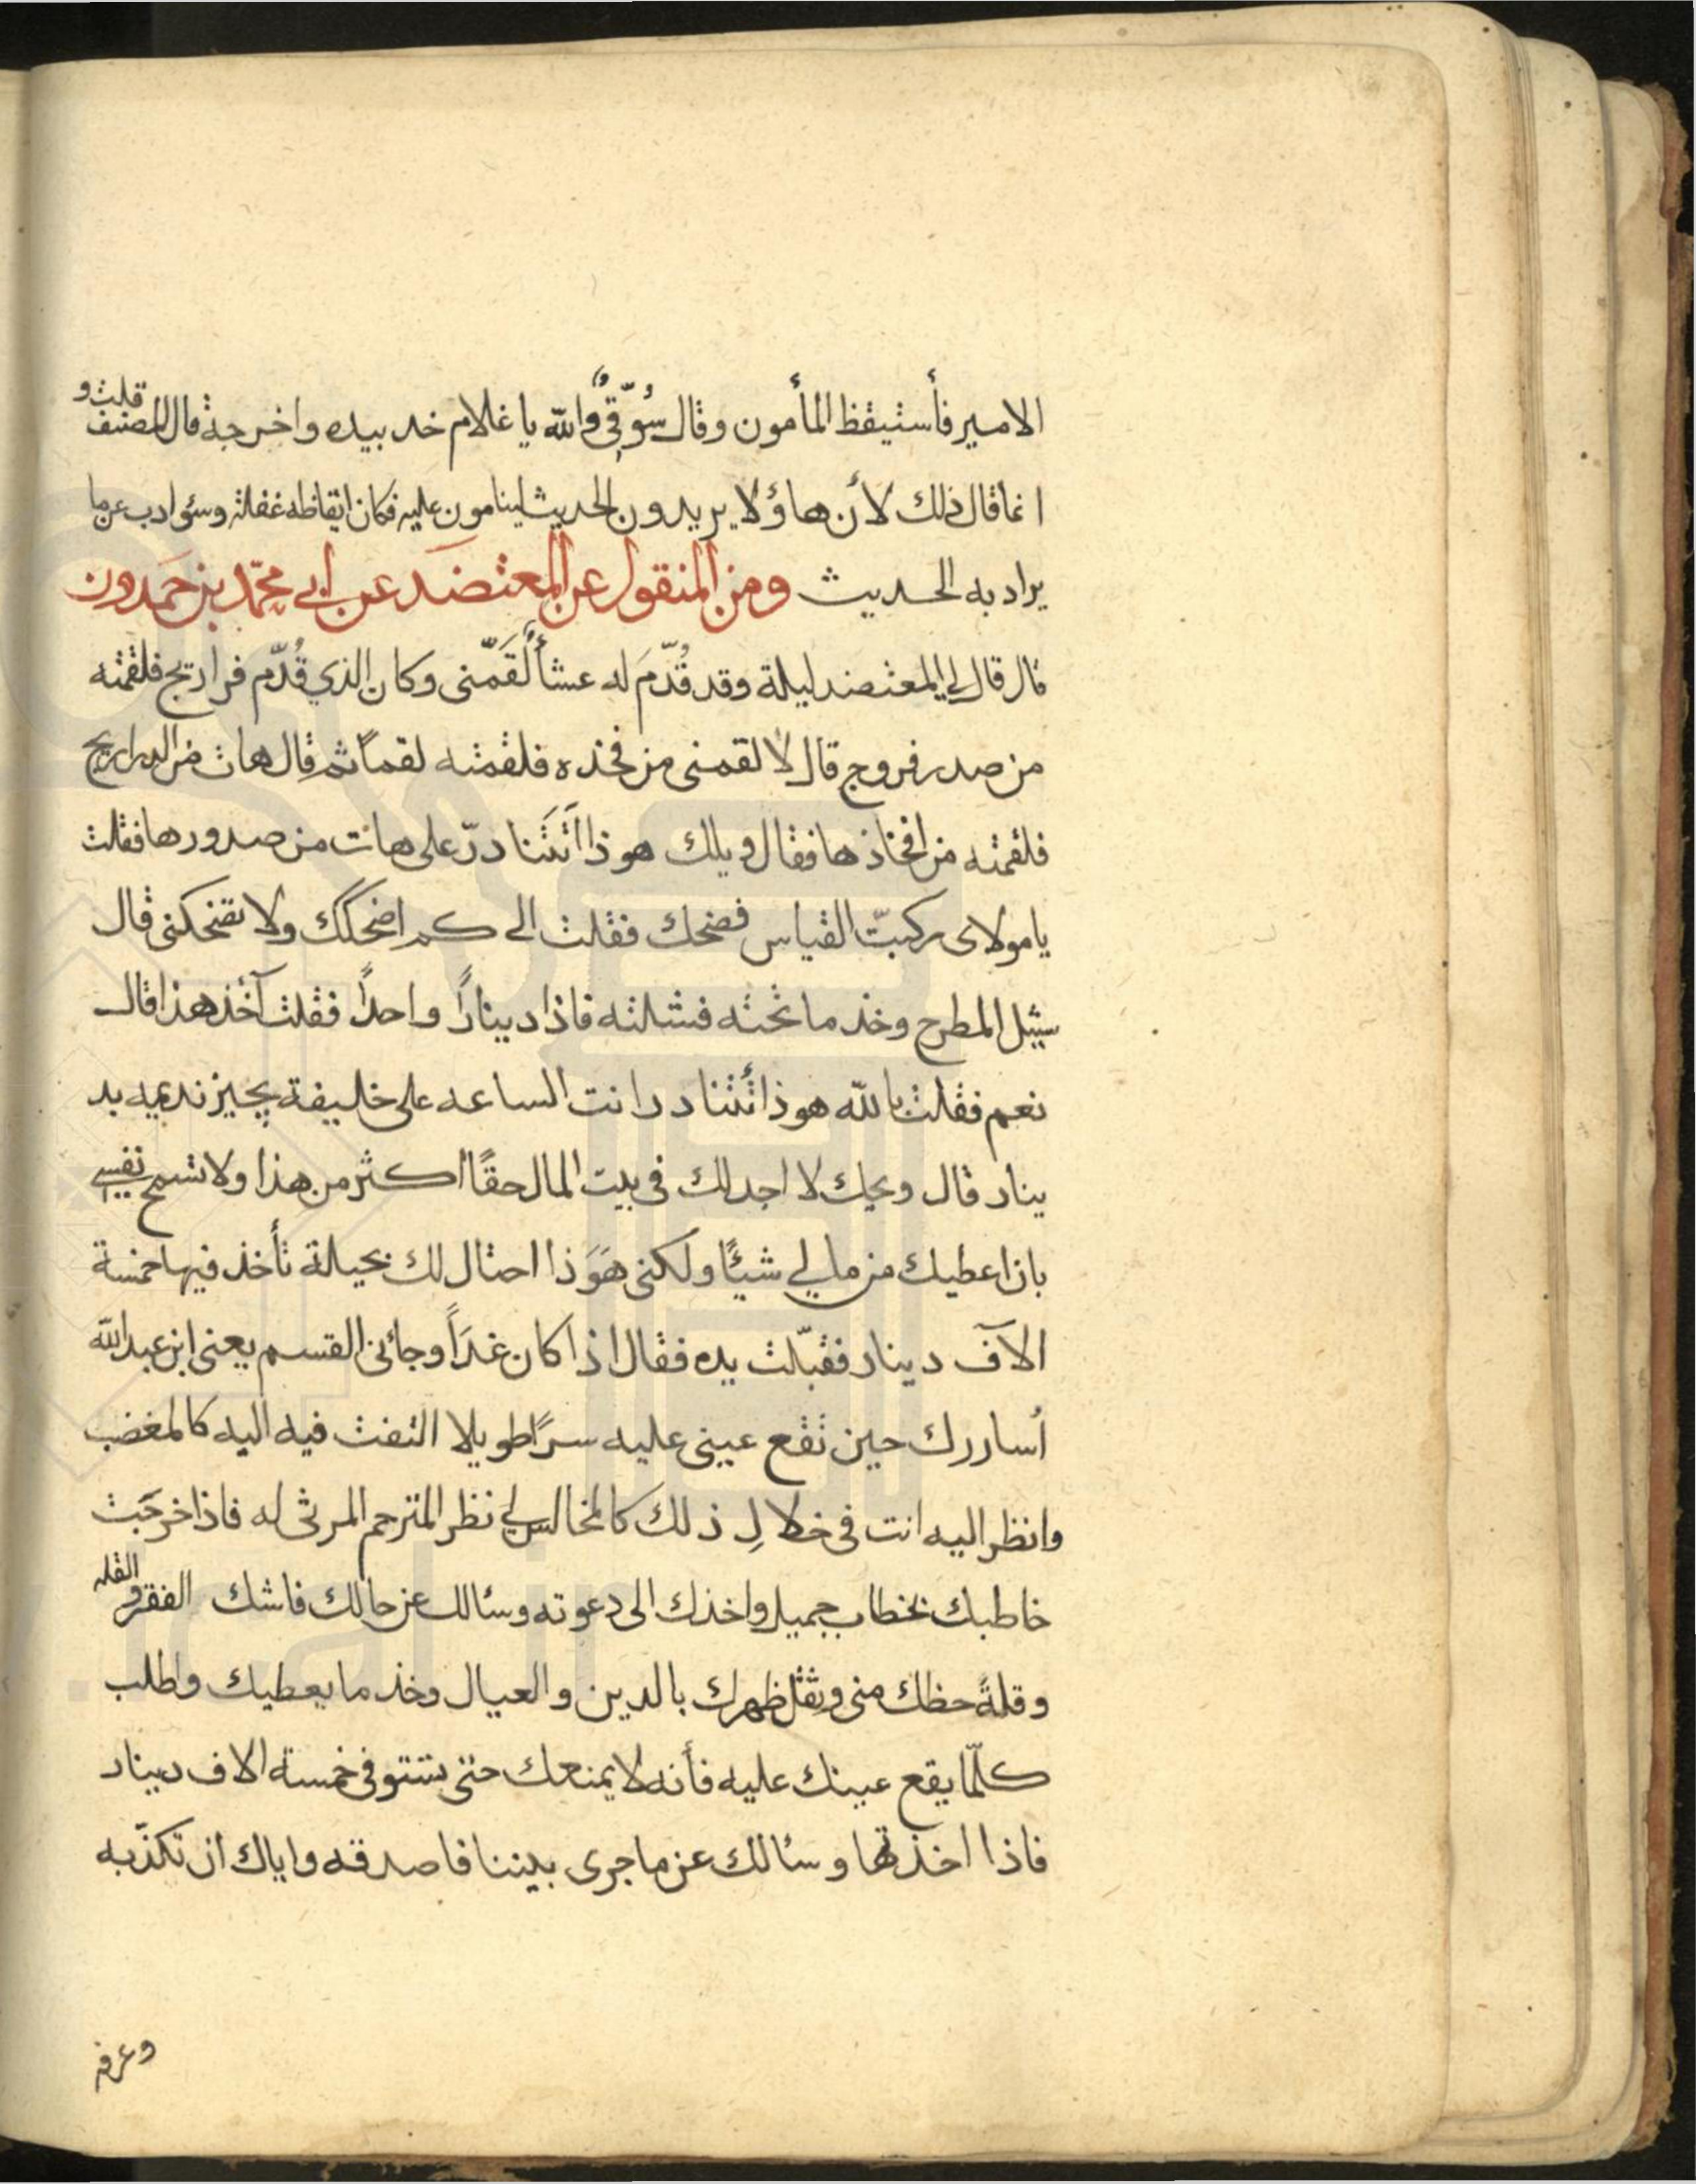 الامير فأستيقظ المأمون وقال سُوّقِيٌّ والله يا غلام خد بيده واخرجه قال المصنف قلت و
انما قال ذلك لأن هاؤلا يريدون الحديث لينامون عليه فكان ايقاظه غفلة وسؤ ادب عن ما
يراد به الحديث ومن المنقول عن المعتضد عن ابي محمّد بن حَمدون
قال قال لي المعتضد ليلة وقد قُدّمَ له عشأ لَقّمنى وكان الذي قُدّم فراريج فلقمته
من صدر فروج قال لا لقمنى من فخذه فلقمته لقماً ثم قال هات من الدراريج
فلقمته من افخاذها فقال ويلك هو ذا اتَتَنادرّ على هات من صدورها فقلت
يا مولاى ركبتّ القياس فضحك فقلت الى كم اضحكك ولا تضحكنى قال
سيثل المطرح وخذ ما تحته فشلته فاذا ديناراً واحداً فقلت آخذ هذا قال
نعم فقلت بالله هو ذا أتتنادر انت الساعه على خليفة يجيز نديمه بد
ينار قال ويحك لا اجد لك فى بيت المال حقاً اكثر من هذا ولا تسمح نفسي
بان اعطيك من مالي شيئًا ولكنى هَوَ ذا احتال لك بحيلة تأخذ فيها خمسة
الآف دينار فقبّلت يده فقال اذا كان غدَاً وجائنى القسم يعنى ابن عبد الله
أساررك حين تقع عينى عليه سرًا طويلا التفت فيه اليه كالمغضب
وانظر اليه انت فى خلالِ ذلك كالمخالس لي نظر المترحم المرثى له فاذا خرجَت
خاطبك بخطاب جميل واخذك الى دعوته وسئالك عن حالك فاشك الفقر والقله
وقلةً حظك منى وثقل ظهرك بالدين والعيال وخذ ما يعطيك واطلب
كلّما يقع عينك عليه فأنه لا يمنعك حتى تستوفى خمسة الاف دينار
فاذا اخذتها وسئالك عن ما جرى بيننا فاصدقه واياك ان تكذّبه
وعرفه